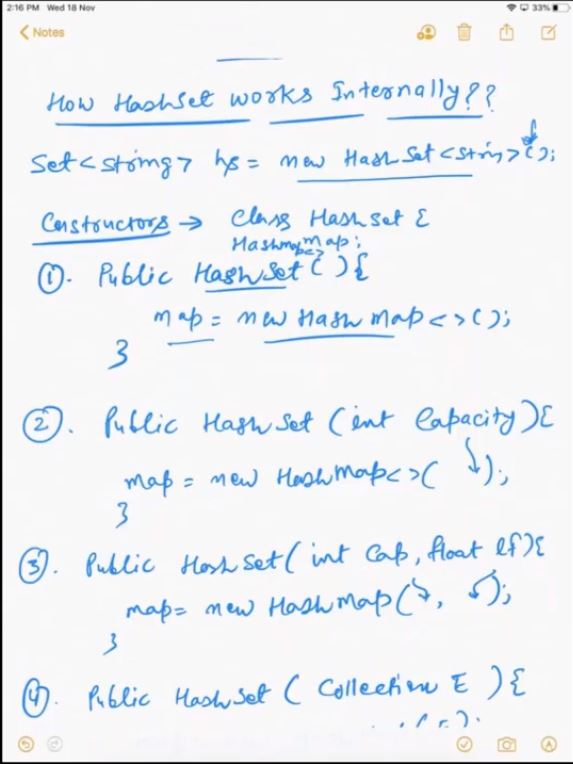 2:16 PM Wed 18 Nov 33%
Notes
How HashSet works Internally??
Set<string> hs = new HashSet<string>();
Constructors → Class Hashset {
Hashmap<> map;
①. Public HashSet( ){
map = new Hashmap<>();
}
②. Public HashSet (int Capacity){
map = new Hashmap<>( );
}
③. Public HashSet( int Cap, float lf){
map= new Hashmap( , );
}
④. Public HashSet ( Collection E ) {